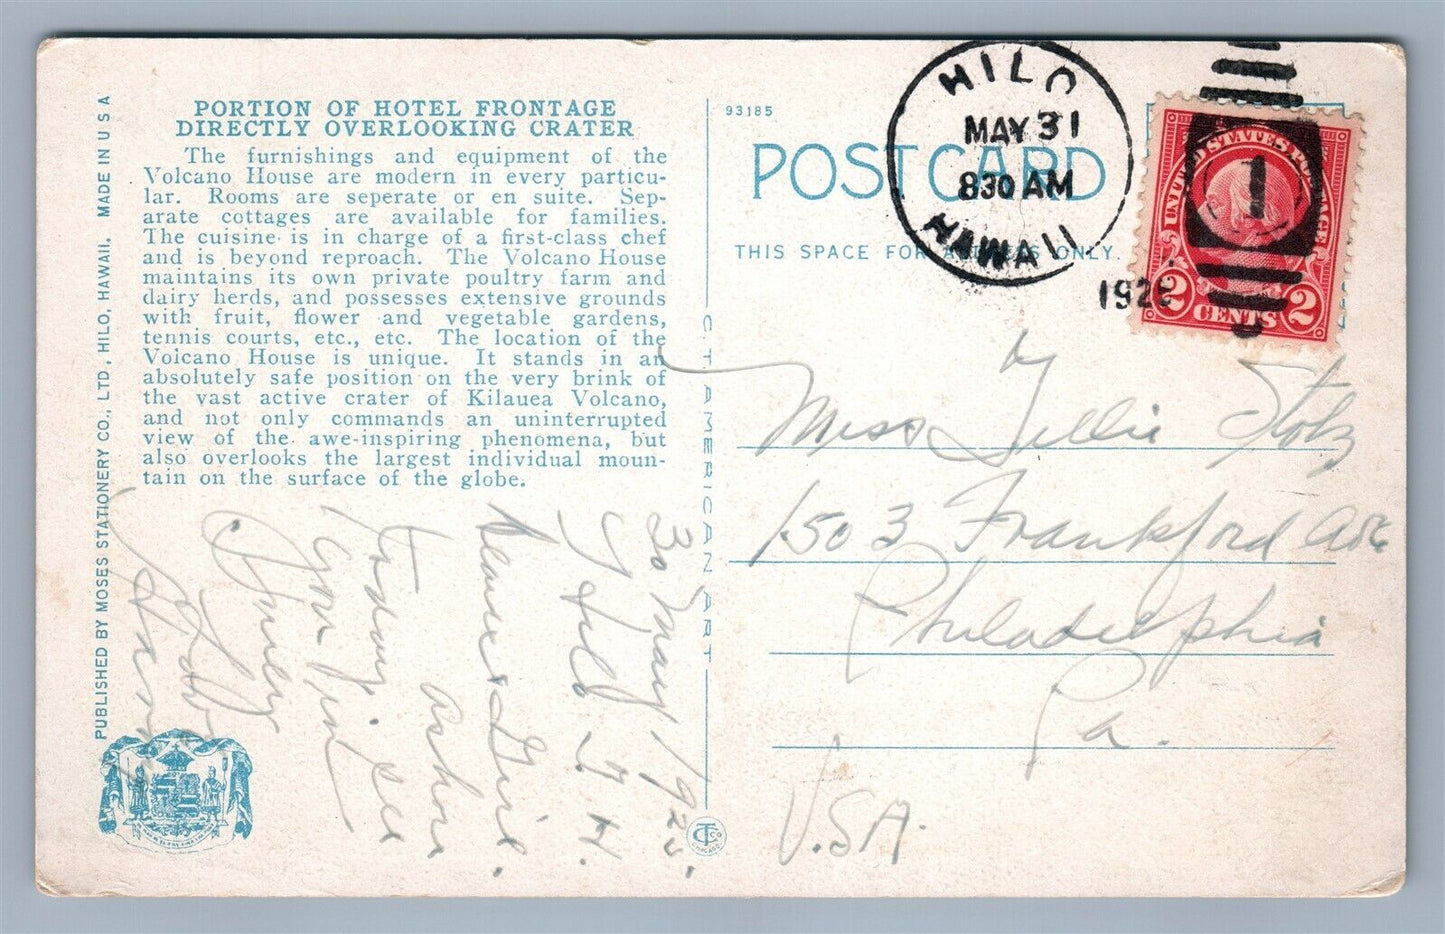 PORTION OF HOTEL FRONTAGE
DIRECTLY OVERLOOKING CRATER
The furnishings and equipment of the
Volcano House are modern in every particu-
lar. Rooms are seperate or en suite. Sep-
arate cottages are available for families.
The cuisine is in charge of a first-class chef
and is beyond reproach. The Volcano House
maintains its own private poultry farm and
dairy herds, and possesses extensive grounds
with fruit, flower and vegetable gardens,
tennis courts, etc., etc. The location of the
Volcano House is unique. It stands in an
absolutely safe position on the very brink of
the vast active crater of Kilauea Volcano,
and not only commands an uninterrupted
view of the awe-inspiring phenomena, but
also overlooks the largest individual moun-
tain on the surface of the globe.
PUBLISHED BY MOSES STATIONERY CO., LTD., HILO, HAWAII. MADE IN U S A
30 May 1925.
Hilo T. H.
Girl.
ashore
today see
your
93185
POST CARD
THIS SPACE FOR ADDRESS ONLY.
C T AMERICAN ART
HILO
MAY 31
830 AM
HAWAII
192
UNITED STATES POSTAGE
1
2 CENTS 2
Miss Tillie Stotz
1503 Frankford Ave
Philadelphia
Pa.
U.S.A.
CT CO
CHICAGO